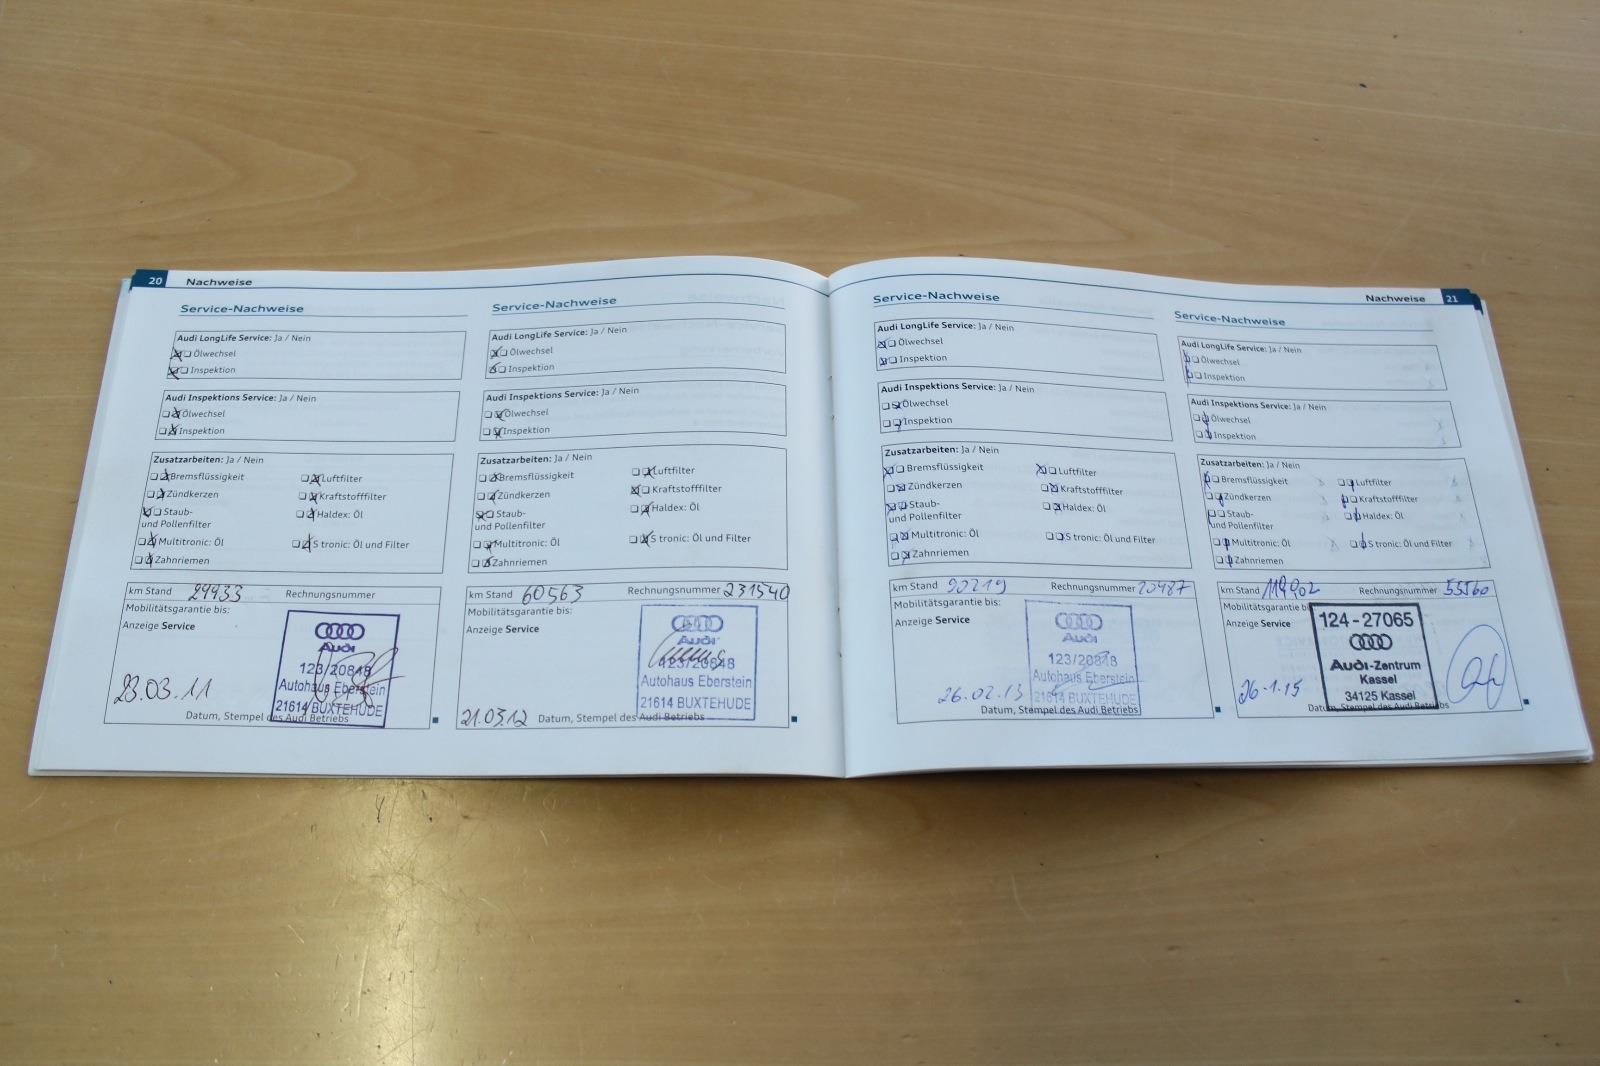 20 Nachweise
Service-Nachweise
Audi LongLife Service: Ja / Nein
Ölwechsel
Inspektion
Audi Inspektions Service: Ja / Nein
Ölwechsel
Inspektion
Zusatzarbeiten: Ja / Nein
Bremsflüssigkeit Luftfilter
Zündkerzen Kraftstofffilter
Staub- Haldex: Öl
und Pollenfilter
Multitronic: Öl S tronic: Öl und Filter
Zahnriemen
km Stand 29933 Rechnungsnummer
Mobilitätsgarantie bis:
Anzeige Service
Audi
123/20848
Autohaus Eberstein
21614 BUXTEHUDE
23.03.11
Datum, Stempel des Audi Betriebs
Service-Nachweise
Audi LongLife Service: Ja / Nein
Ölwechsel
Inspektion
Audi Inspektions Service: Ja / Nein
Ölwechsel
Inspektion
Zusatzarbeiten: Ja / Nein
Bremsflüssigkeit Luftfilter
Zündkerzen Kraftstofffilter
Staub- Haldex: Öl
und Pollenfilter
Multitronic: Öl S tronic: Öl und Filter
Zahnriemen
km Stand 60563 Rechnungsnummer 231540
Mobilitätsgarantie bis:
Anzeige Service
Audi
123/20848
Autohaus Eberstein
21614 BUXTEHUDE
21.03.12 Datum, Stempel des Audi Betriebs
Service-Nachweise
Audi LongLife Service: Ja / Nein
Ölwechsel
Inspektion
Audi Inspektions Service: Ja / Nein
Ölwechsel
Inspektion
Zusatzarbeiten: Ja / Nein
Bremsflüssigkeit Luftfilter
Zündkerzen Kraftstofffilter
Staub- Haldex: Öl
und Pollenfilter
Multitronic: Öl S tronic: Öl und Filter
Zahnriemen
km Stand 90219 Rechnungsnummer 20487
Mobilitätsgarantie bis:
Anzeige Service
Audi
123/20848
Autohaus Eberstein
21614 BUXTEHUDE
26.02.13
Datum, Stempel des Audi Betriebs
Nachweise 21
Service-Nachweise
Audi LongLife Service: Ja / Nein
Ölwechsel
Inspektion
Audi Inspektions Service: Ja / Nein
Ölwechsel
Inspektion
Zusatzarbeiten: Ja / Nein
Bremsflüssigkeit Luftfilter
Zündkerzen Kraftstofffilter
Staub- Haldex: Öl
und Pollenfilter
Multitronic: Öl S tronic: Öl und Filter
Zahnriemen
km Stand 119902 Rechnungsnummer 55560
Mobilitätsgarantie
Anzeige Service
124-27065
Audi-Zentrum
Kassel
34125 Kassel
26-1-15
Datum, Stempel des Audi Betriebs